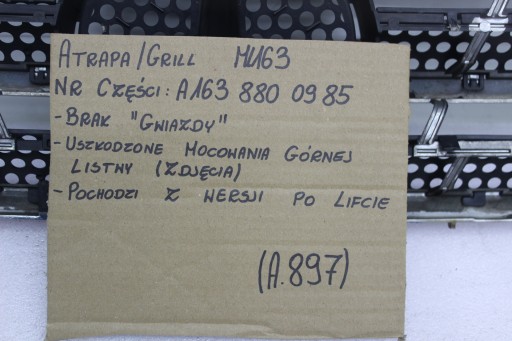 ATRAPA/GRILL MW163
NR CZĘŚCI: A163 880 09 85
- BRAK "GWIAZDY"
- USZKODZONE MOCOWANIA GÓRNEJ
LISTWY (ZDJĘCIA)
- POCHODZI Z WERSJI PO LIFCIE
(A.897)